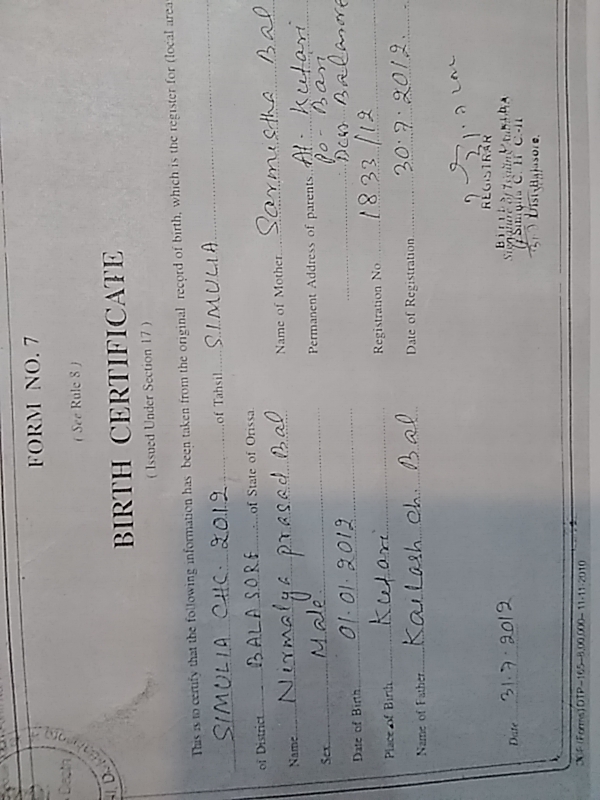 FORM NO. 7
( See Rule 8 )
BIRTH CERTIFICATE
( Issued Under Section 17 )
This is to certify that the following information has been taken from the original record of birth, which is the register for (local area
SIMULIA CHC. 2012 of Tahsil SIMULIA
of District BALASORE of State of Orissa.
Name Nirmalya prasad Bal
Name of Mother Sarmistha Bal
Sex Male
Permanent Address of parents. At- Kutari
Po- Bari
Dist Balasore
Date of Birth 01.01.2012
Place of Birth Kutari
Registration No 1833/12
Name of Father Kailash Ch. Bal
Date of Registration 30.7.2012.
REGISTRAR
Simulia C. H. C.-II
Dist. Balasore.
Date 31.7.2012
(Forms) DTP-165-8,00,000-11-11-2010